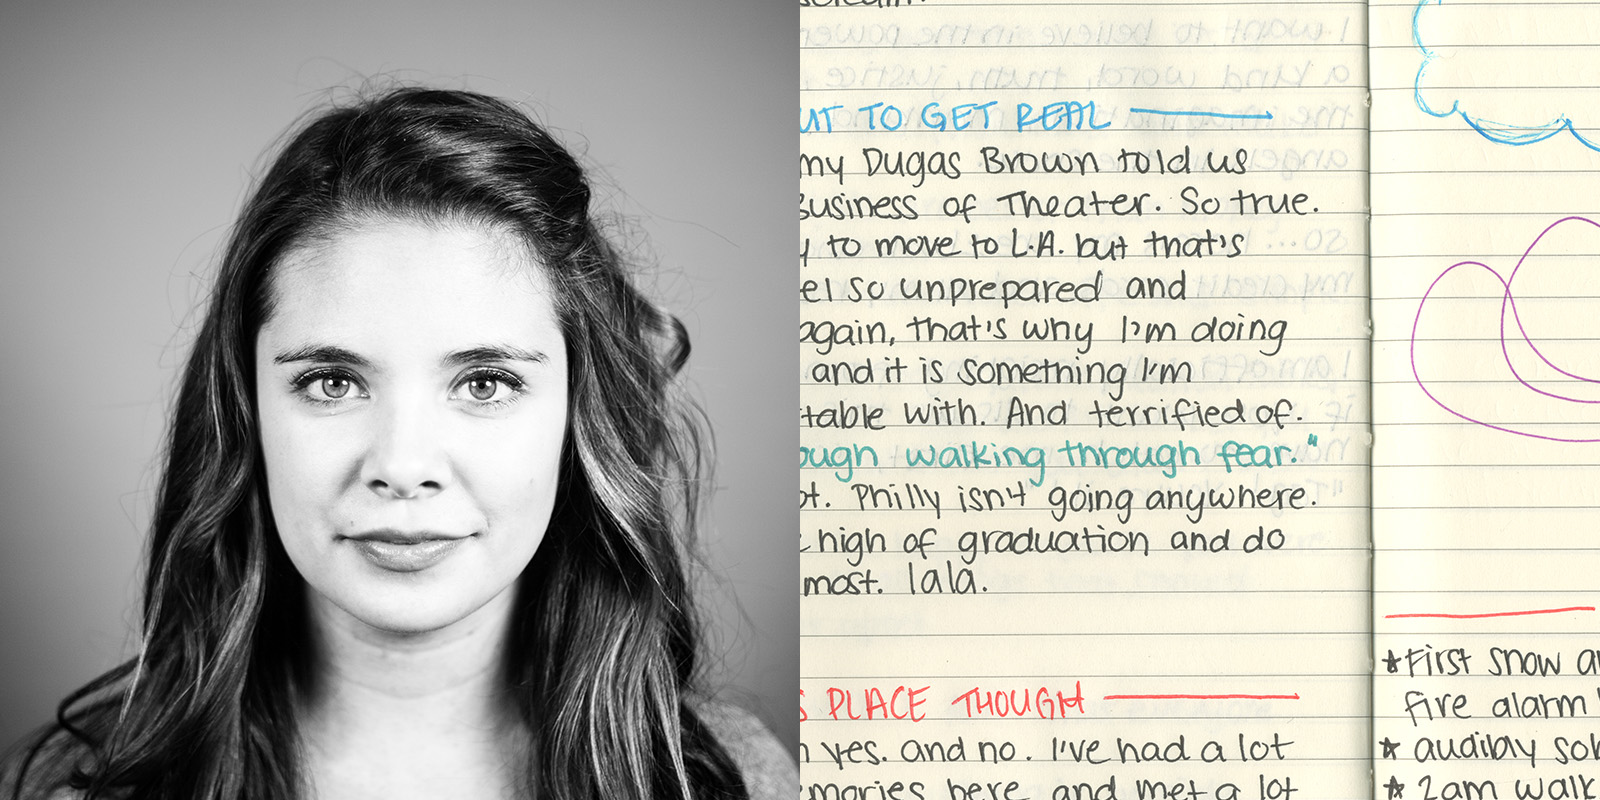 UT TO GET REAL
my Dugas Brown told us
Business of Theater. So true.
y to move to L.A. but that's
el so unprepared and
again, that's why I'm doing
and it is something I'm
table with. And terrified of.
ough walking through fear."
ot. Philly isn't going anywhere.
high of graduation and do
most. lala.
S PLACE THOUGH
yes. and no. I've had a lot
emories here and met a lot
★ First snow a
fire alarm
★ audibly sob
★ 2am walk